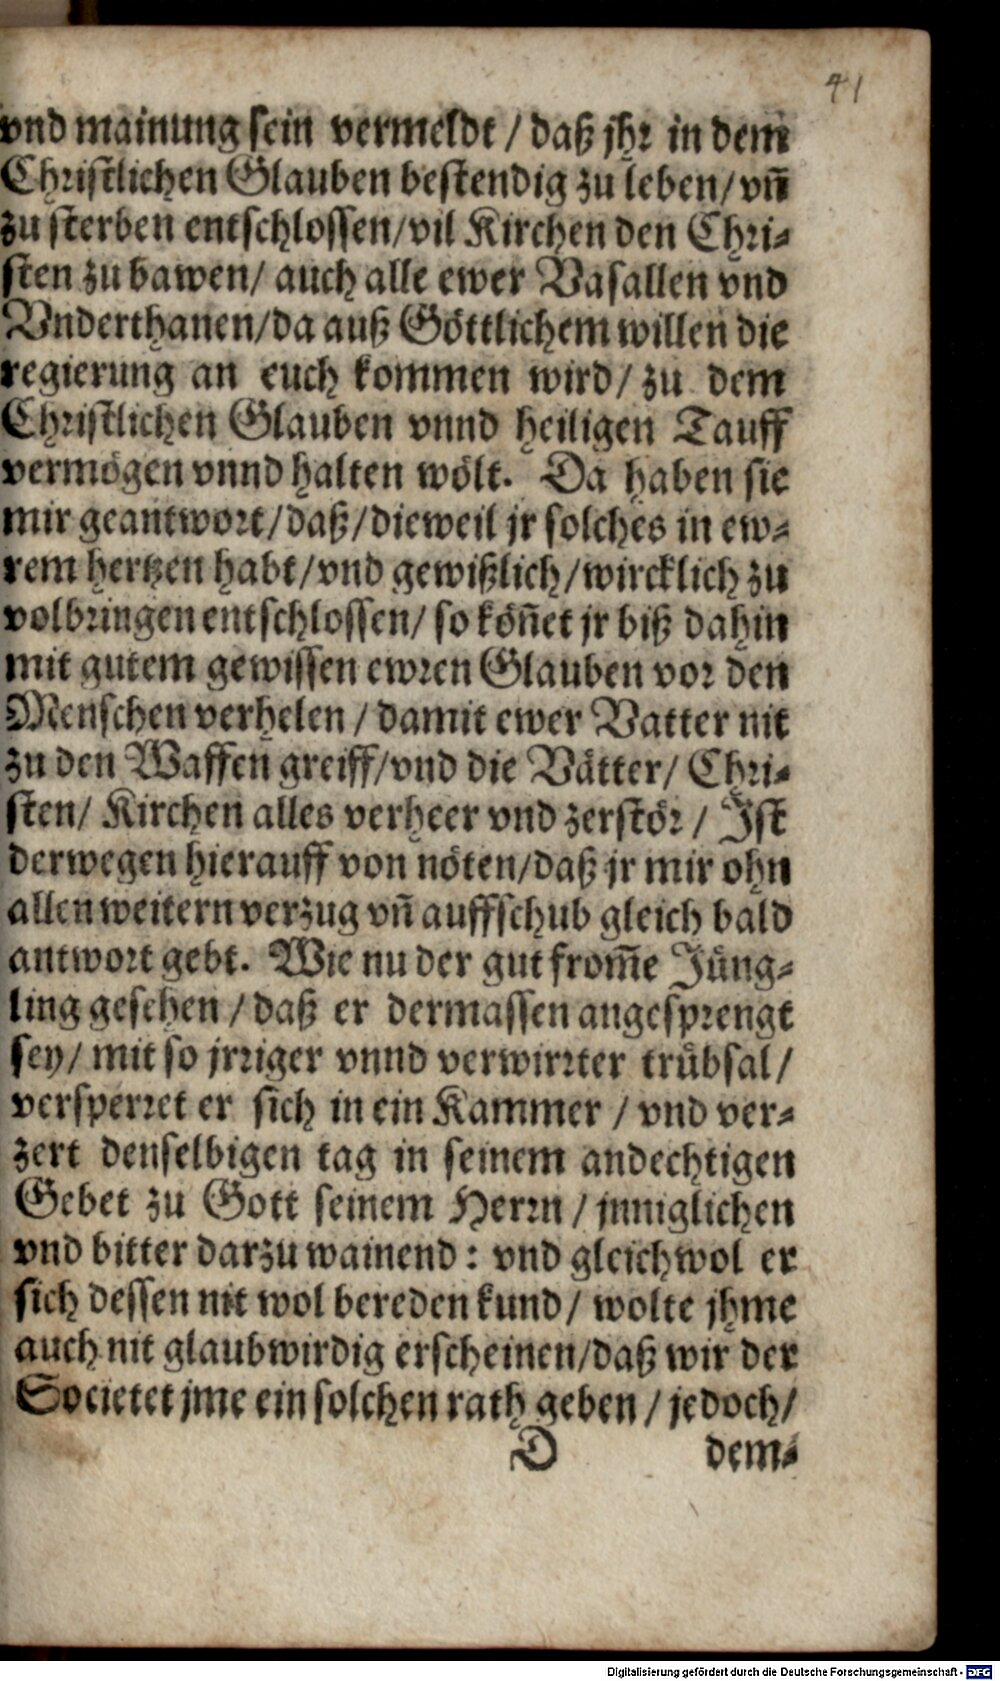 41
vnd mainung sein vermeldt / daß jhr in dem
Christlichen Glauben bestendig zu leben / vñ
zu sterben entschlossen / vil Kirchen den Chri-
sten zu bawen / auch alle ewer Vasallen vnd
Vnderthanen / da auß Göttlichem willen die
regierung an euch kommen wird / zu dem
Christlichen Glauben vnnd heiligen Tauff
vermögen vnnd halten wölt. Da haben sie
mir geantwort / daß / dieweil jr solches in ew-
rem hertzen habt / vnd gewißlich / wircklich zu
volbringen entschlossen / so köñet jr biß dahin
mit gutem gewissen ewren Glauben vor den
Menschen verhelen / damit ewer Vatter nit
zu den Waffen greiff / vnd die Vätter / Chri-
sten / Kirchen alles verheer vnd zerstör / Ist
derwegen hierauff von nöten / daß jr mir ohn
allen weitern verzug vñ auffschub gleich bald
antwort gebt. Wie nu der gut from̃e Jüng-
ling gesehen / daß er dermassen angesprengt
sey / mit so jrriger vnnd verwirrter trübsal /
versperret er sich in ein Kammer / vnd ver-
zert denselbigen tag in seinem andechtigen
Gebet zu Gott seinem Herrn / jnniglichen
vnd bitter darzu wainend : vnd gleichwol er
sich dessen nit wol bereden kund / wolte jhme
auch nit glaubwirdig erscheinen / daß wir der
Societet jme ein solchen rath geben / jedoch /
D dem-
Digitalisierung gefördert durch die Deutsche Forschungsgemeinschaft - DFG